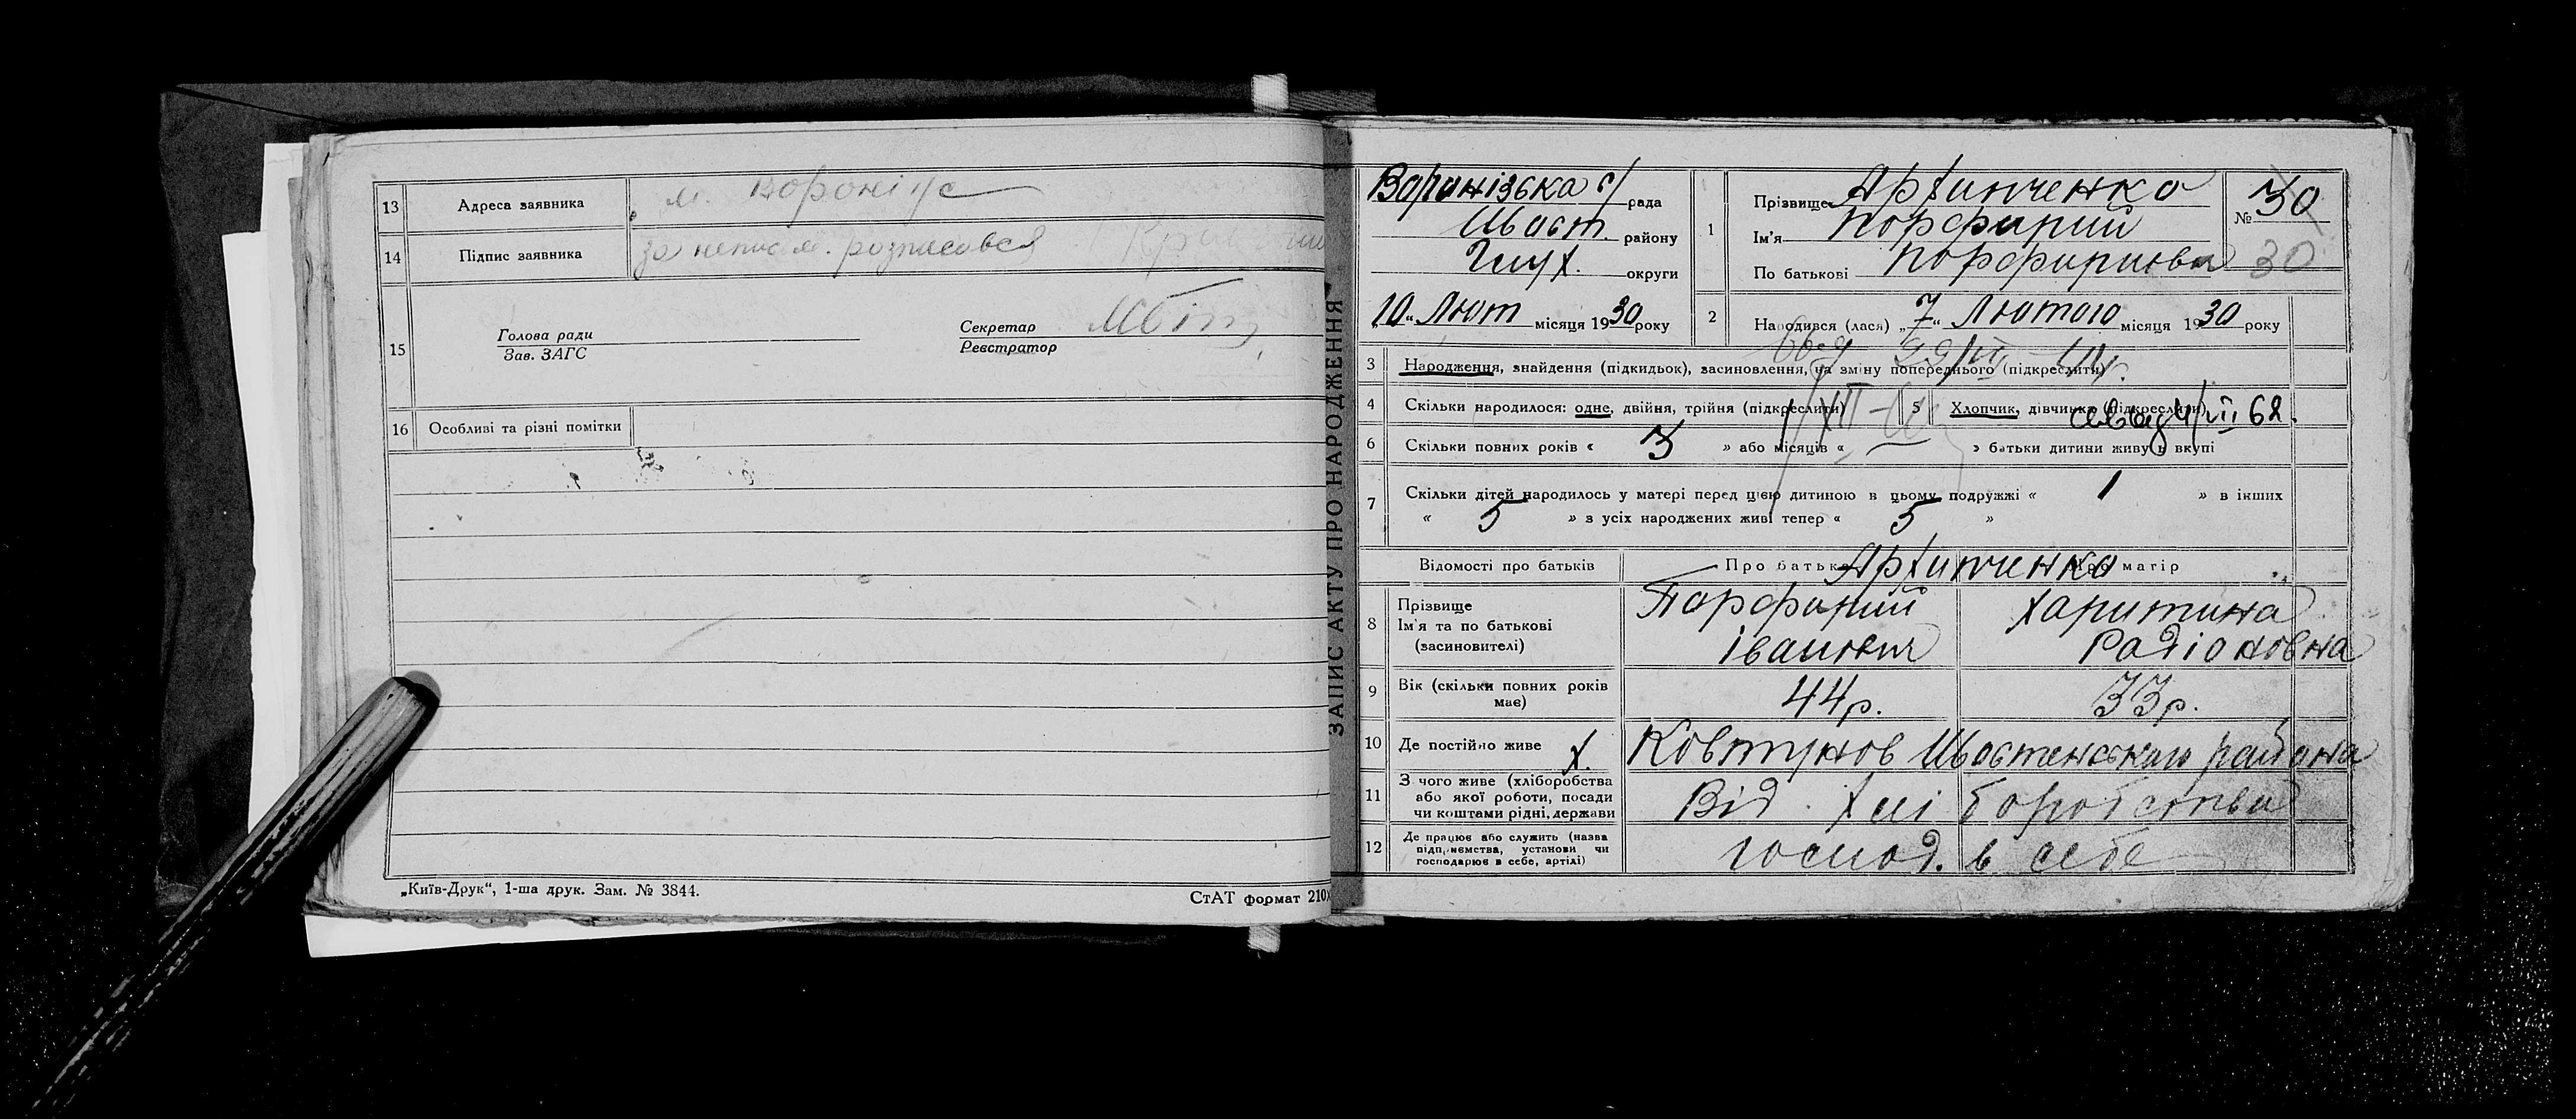 13 Адреса заявника м. Вороніж
14 Підпис заявника за неписьм. розписався
15 Голова ради
Зав. ЗАГС
Секретар
Реєстратор
16 Особливі та різні помітки
„Київ-Друк“, 1-ша друк. Зам. № 3844.
СтАТ формат 210х
ЗАПИС АКТУ ПРО НАРОДЖЕННЯ
Воронізька с/ рада
Шост. району
Глух. округи
„10“ Лют місяця 1930 року
1 Прізвище Архипченко
Ім'я Порфирий
По батькові Порфириєвич
№ 30
30
2 Народився (лася) „7“ Лютого місяця 1930 року
3 Народження, знайдення (підкидьок), засиновлення, на зміну попереднього (підкреслити)
4 Скільки народилося: одне, двійня, трійня (підкреслити)
5 Хлопчик, дівчинка (підкреслити)
6 Скільки повних років « 3 » або місяців « — » батьки дитини живуть вкупі
7 Скільки дітей народилось у матері перед цією дитиною в цьому подружжі « 1 » в інших
« 5 » з усіх народжених живі тепер « 5 »
Відомості про батьків Про батька Про матір
Архипченко
8 Прізвище
Ім'я та по батькові
(засиновителі)
Порфирий
Іванович
Харитина
Радіоновна
9 Вік (скільки повних років має) 44 р. 33 р.
10 Де постійно живе х. Ковтунов Шостенського района
11 З чого живе (хліборобства
або якої роботи, посади
чи коштами рідні, держави
Від хліборобства
12 Де працює або служить (назва
підприємства, установи чи
господарює в себе, артілі)
господ. в себе